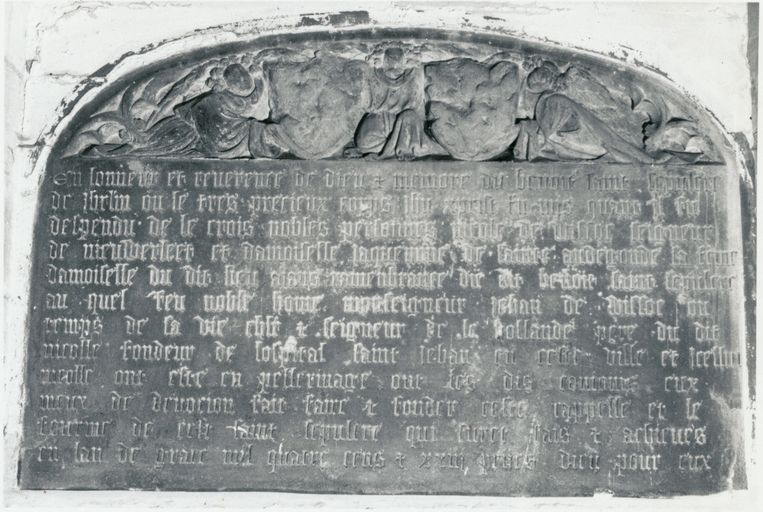 En lonneur et reverence de dieu & memoire du benoit saint sepulcre
de Jhrlm ou le tres precieux corps Jhu crist fu mis quant il fu
despendu de le crois nobles personnes nicole de seigneur
de nieuwerleet et damoiselle de sainte aldegonde sa feme
damoiselle du dit lieu aians ramembrance du dit benoit saint sepulcre
au quel feu noble home monseigneur Jehan de wissoc ou
temps de sa vie chlr & seigneur de le hollande pere du dit
nicolle fondeur de lospital saint Jehan en ceste ville et Icellui
nicolle ont este en pellerinage ont les dis eux
meux de devocion fait faire & fonder ceste cappelle et le
fourme de cest saint sepulcre qui furet fais & achieues
en lan de grace mil quatre cens & pries dieu pour eux